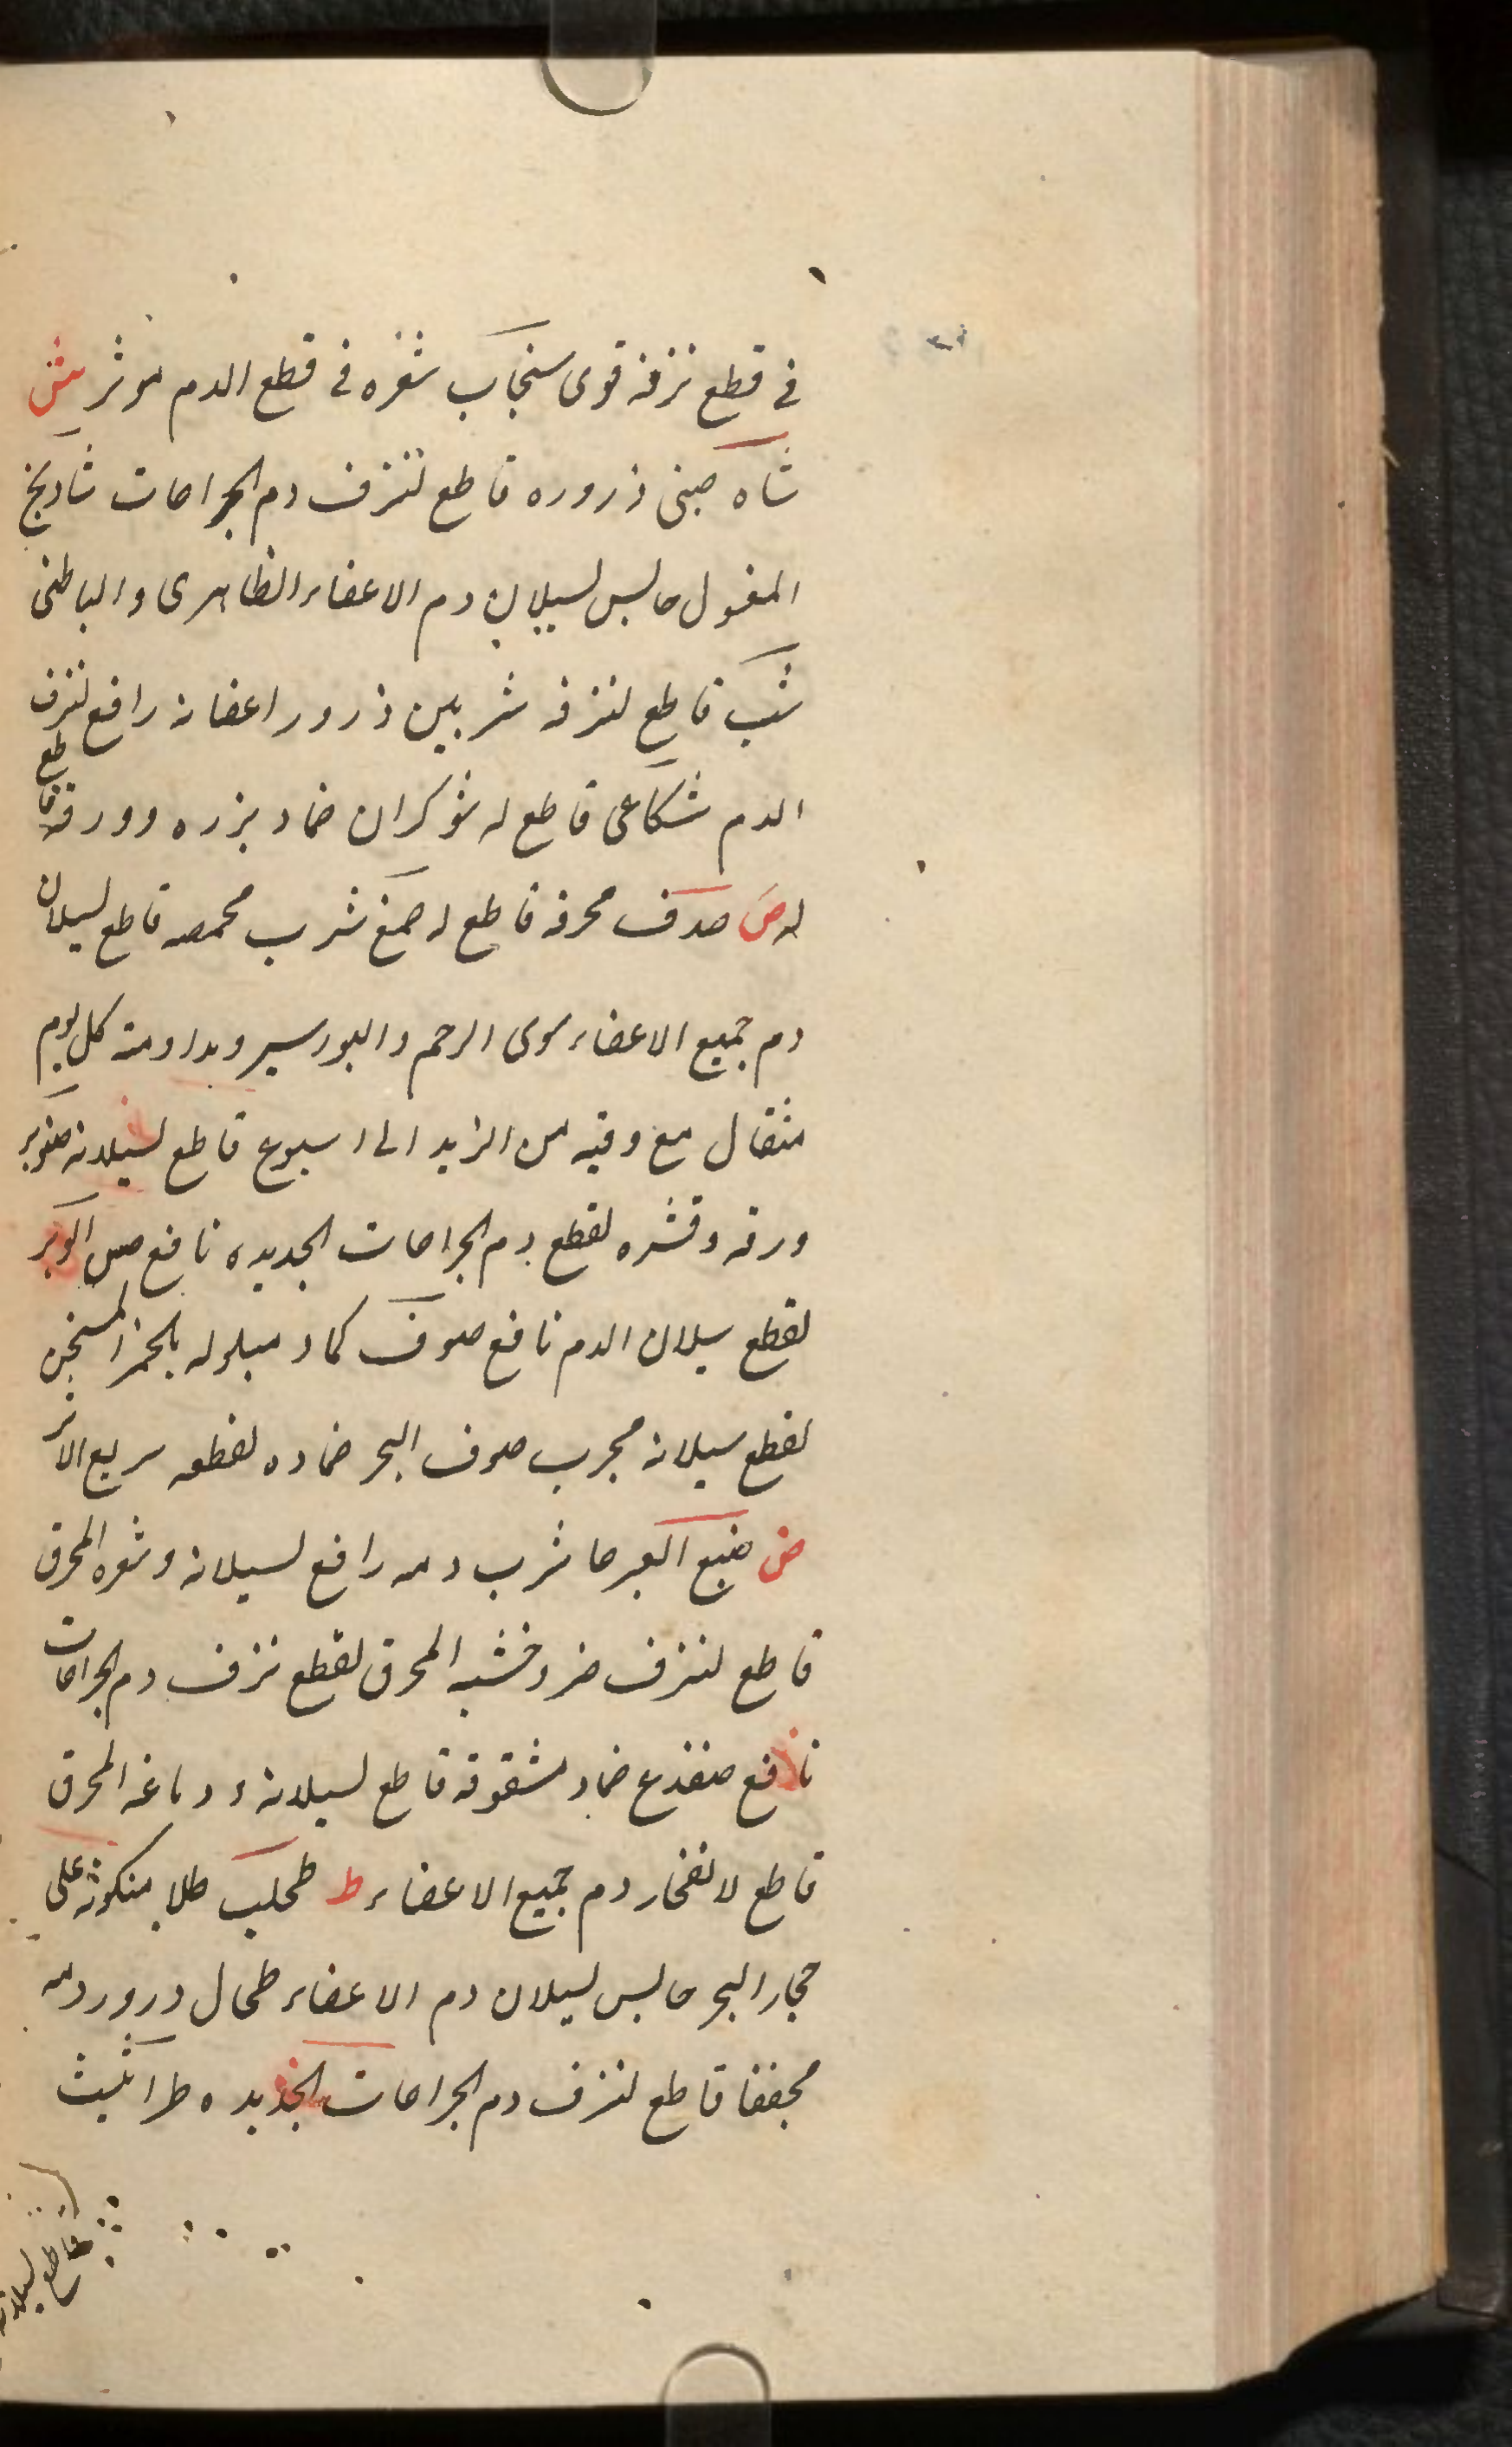 في قطع نزفه قوى سنجاب شعره في قطع الدم موثر ش
شاه صينى ذروره قاطع لنزف دم الجراحات شاديخ
المغسول حابس لسيلان دم الاعضاء الظاهرى والباطنى
شب قاطع لنزفه شربين ذرور اغصانه رافع لنزف
الدم شكاعى قاطع له شوكران ضماد بزره وورقه قاطع
له ص صدف محرقه قاطع له صمغ شرب محمصه قاطع لسيلان
دم جميع الاعضاء سوى الرحم والبورسير ومداومته كل يوم
مثقال مع وقيه من الزبد الى اسبوع قاطع لسيلانه صنوبر
ورقه وقشره لقطع دم الجراحات الجديده نافع الوبر
لقطع سيلان الدم نافع صوف كماد مبلوله بالخمر المسخن
لقطع سيلانه مجرب صوف البحر ضماده لقطعه سريع الاثر
ض ضبع العرجا شرب دمه رافع لسيلانه وشعره المحرق
قاطع لنزف ضرو خشبه المحرق لقطع نزف دم الجراحات
نافع ضفدع ضماد مشقوقه قاطع لسيلانه ودماغه المحرق
قاطع لانفجار دم جميع الاعضاء ط طحلب طلا على
حجار البحر حابس لسيلان دم الاعضاء طحال ذرور دمه
مجففا قاطع لنزف دم الجراحات الجديده طراثيث
قاطع لسيلانه